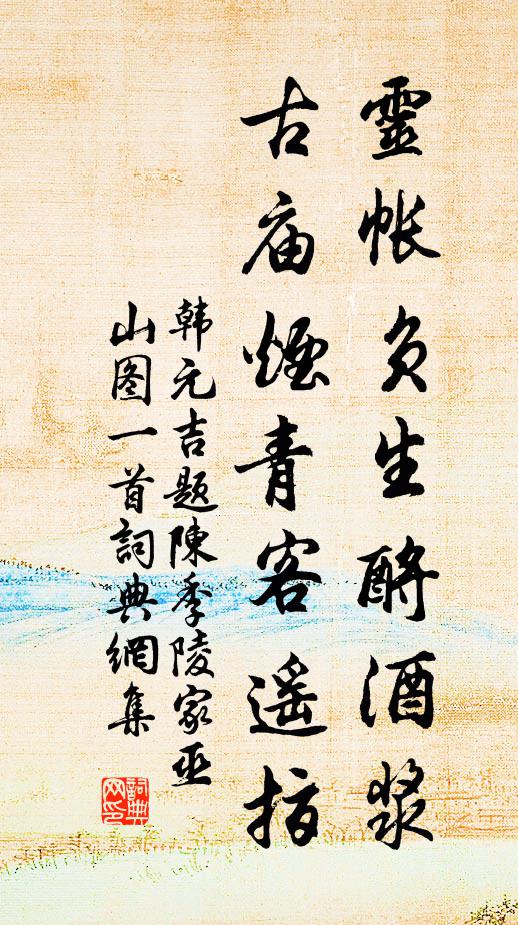 靈帐负生酹酒浆
古庙煙青客遥指
韩元吉题陳季陵家巫
山图一首詞典網集
詞典网印